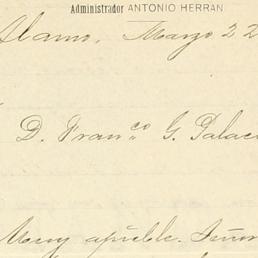 Administrador ANTONIO HERRAN
Alamo, Marzo 22
D. Fran.co G. Palac
Muy apreble. Señor